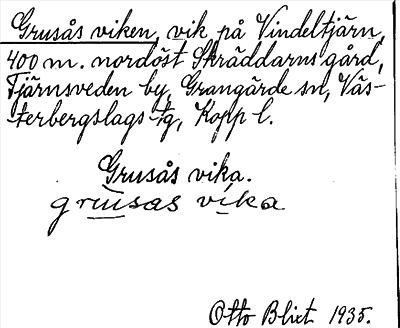 Grusås viken, vik på Vindeltjärn,
400 m. nordöst Skräddarns gård,
Tjärnsveden by, Grangärde sn, Väs-
terbergslags tg, Kopp l.
Grusås vika.
grusas vika
Otto Blixt 1935.